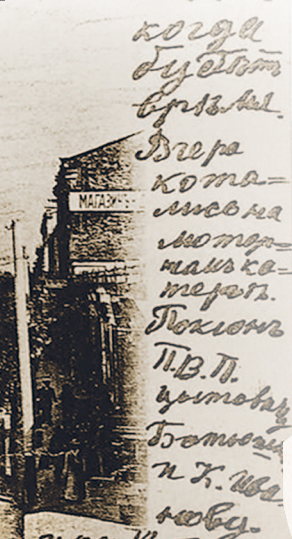 когда
будетъ
врѣмя.
Вчера
ката=
лись на
мотор=
ка=
терѣ.
Поклонъ
П.В.П.
и К. Ива=
нову.
МАГАЗИНЪ